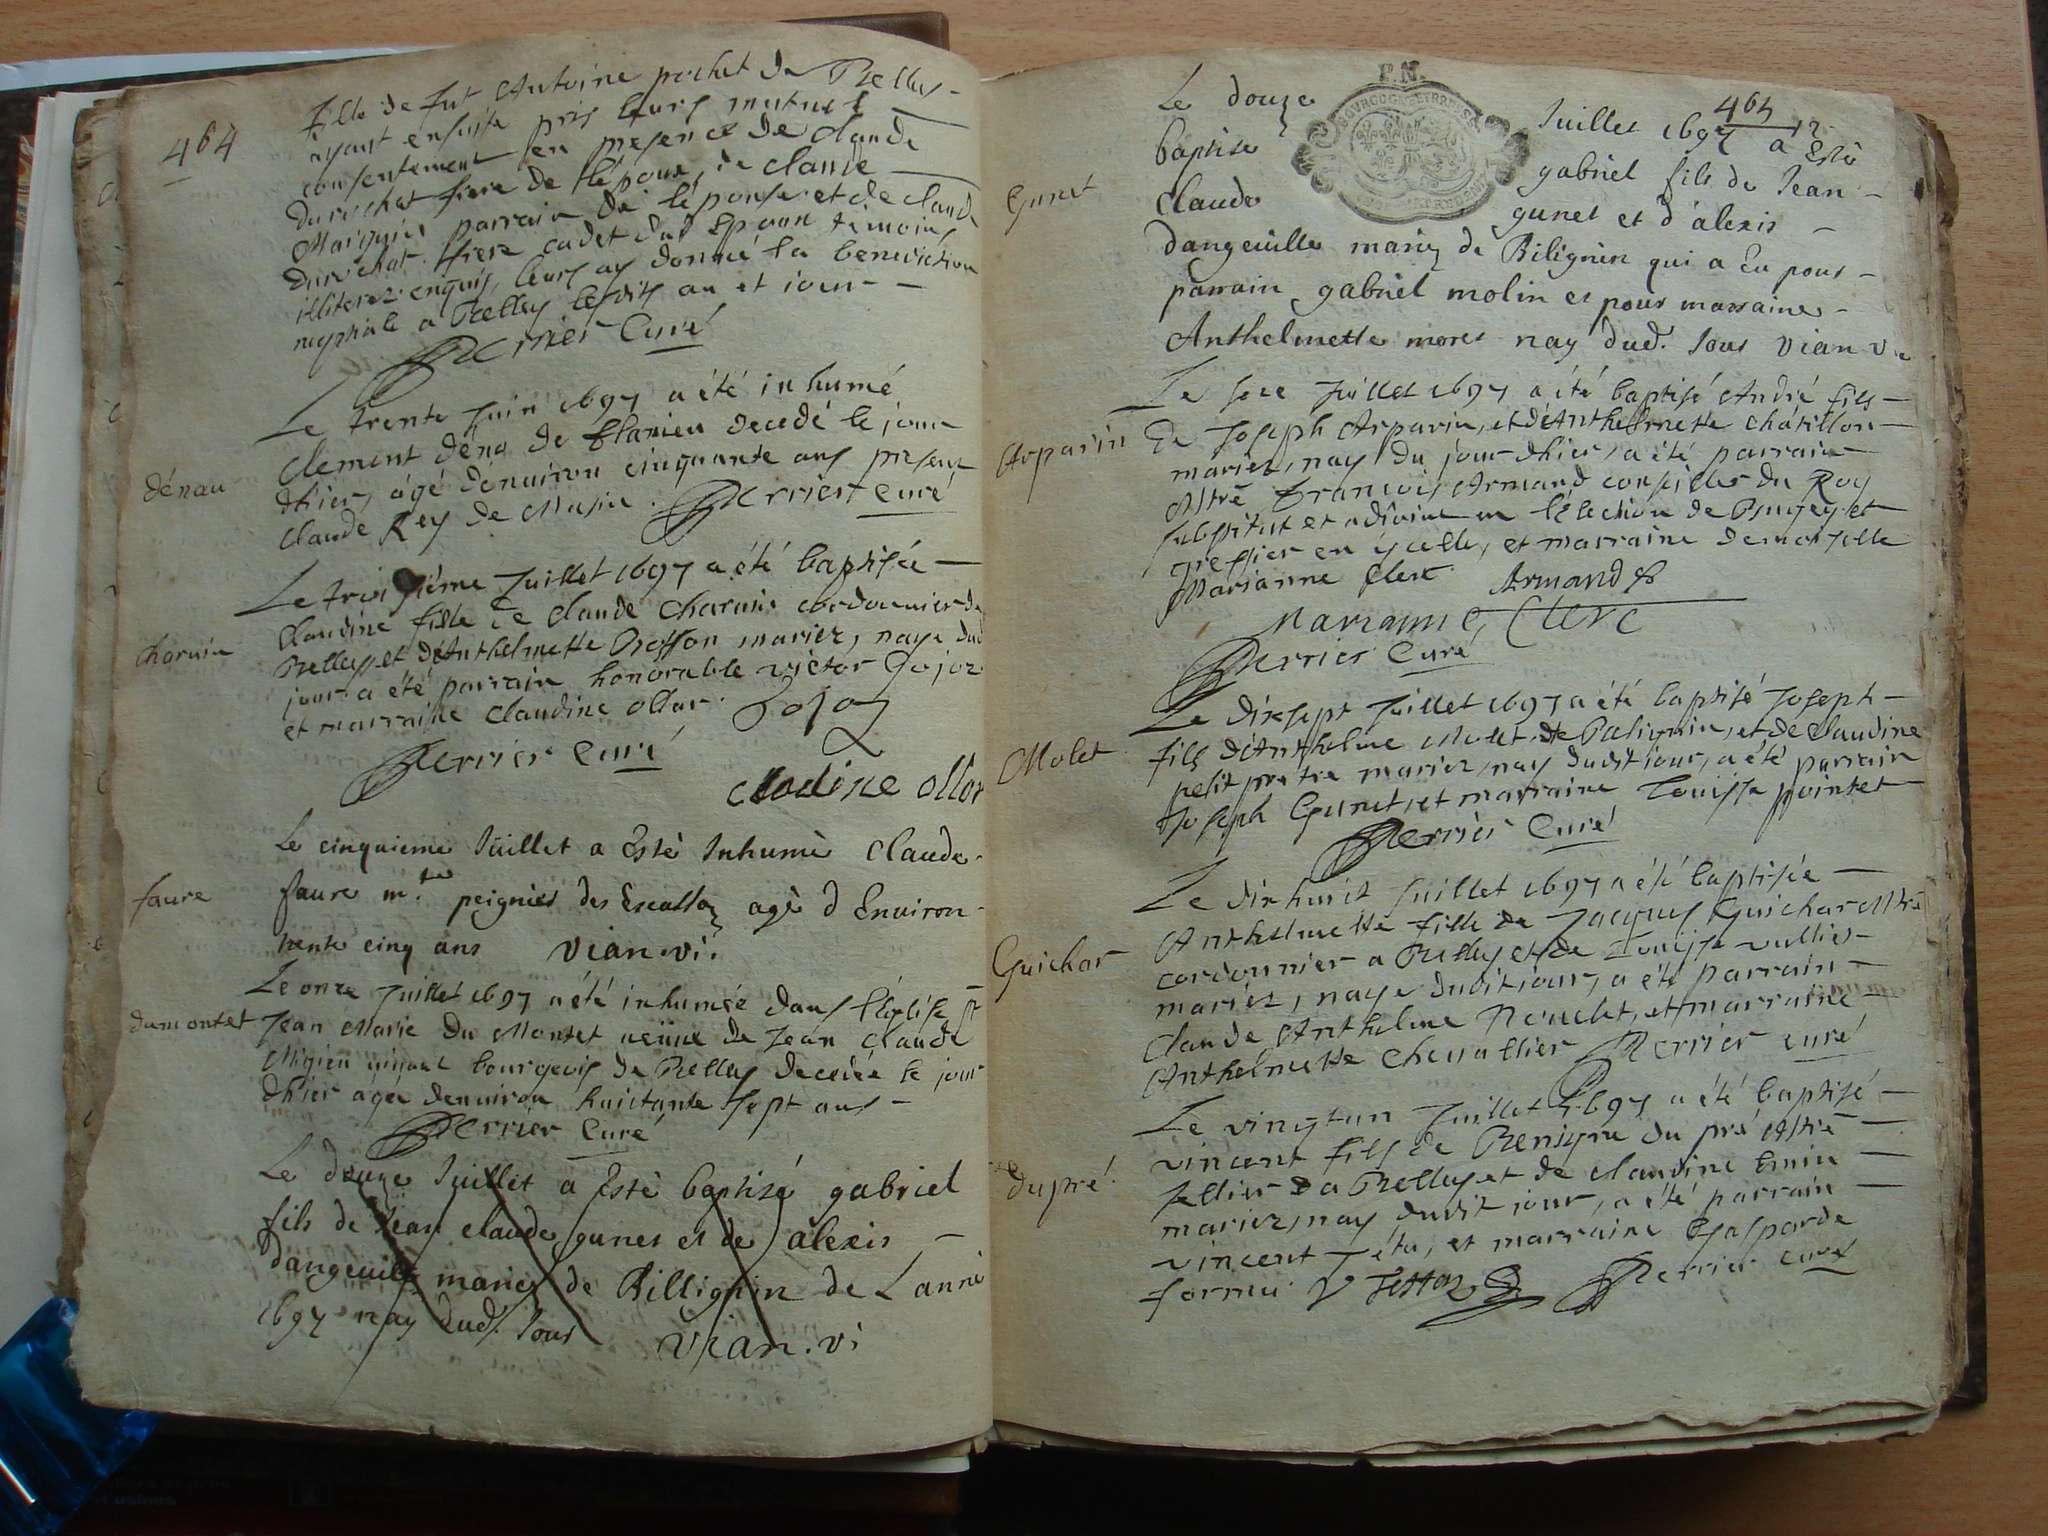 464
fille de fut Antoine pochet de Belley
ayant ensuite pris leurs mutuel
consentement en presence de claude
Durochat frere de l'époux, de claude
parrain de l'épouse et de claude
Durochat frere cadet dud Epoux témoins
illiterez enquis, leurs ay donné la benediction
nuptiale a Belley lesdits an et jour
Perrier Curé
dénau
Le trente Juin 1697 a été inhumé
Clement déna de decedé le jour
d'hier, âgé d'environ cinquante ans present
claude Rey de Musin. Perrier curé
charuin
Le troisiéme Juillet 1697 a été baptisée
Claudine fille de Claude Charuin cordonnier de
Belley et d'Anthelmette Brosson mariez, naye dud
jour a été parrain honorable victor Jojoz
et marraine Claudine ollar. Jojoz
Perrier Curé
Clodine ollor
faure
Le cinquieme Juillet a Esté Inhumé Claude
faure mtre peignier des Escallon agé d Environ
trente cinq ans vian. vi.
dumontet
Le onze Juillet 1697 a été inhumée dans l'Église St
Jean Marie du Montet veuue de Jean Claude
Migieu viuant bourgeois de Belley decedée le jour
d'hier agée denuiron huictante sept ans
Perrier Curé
Le douze Juillet a Esté baptisé gabriel
fils de Jean claude gunet et de alexis
dangeuille mariez de Billignin de Lanné
1697 nay dud. Jour vian. vi
464
Gunet
Le douze Juillet 1697 a Esté
baptise gabriel fils de Jean
Claude gunet et d'alexis
dangeuille mariez de Bilignin qui a Eu pour
parrain gabriel molin et pour marraine
Anthelmette moret nay dud. Jour vian vi
Arparin
Le seze Juillet 1697 a été baptisé André fils
De Joseph Arparin, et d'Anthelmette châtillon
mariez, nay du jour d'hier, a été parrain
Mtre François Armand conseiller du Roy
substitut et adjoint en l'Élection de Bugey et
greffier en ycelle, et marraine demoiselle
Marianne Clerc. Armand
Marianne Clerc
Perrier Curé
Molet
Le dixsept Juillet 1697 a été baptisé Joseph
fils d'Anthelme Molet de Bilignin, et de Claudine
petit prestre mariez, nay dudit jour, a été parrain
Joseph Gunet, et marraine Louise pointet
Perrier Curé
Guichar
Le dixhuict Juillet 1697 a été baptisée
Anthelmette fille de Jacques Guichar Mtre
cordonnier a Belley et de Louise vullier
mariez, naye dudit jour, a été parrain
claude Anthelme Nouclet, et marraine
Anthelmette Cheuallier Perrier curé
Dupré
Le vingtun Juillet 1697 a été baptisé
vincent fils de Benigne du pré Mtre
sellier a Belley et de claudine Emin
mariez, nay dudit jour, a été parrain
vincent Têtu, et marraine Gasparde
fornui V Tettoz Perrier curé